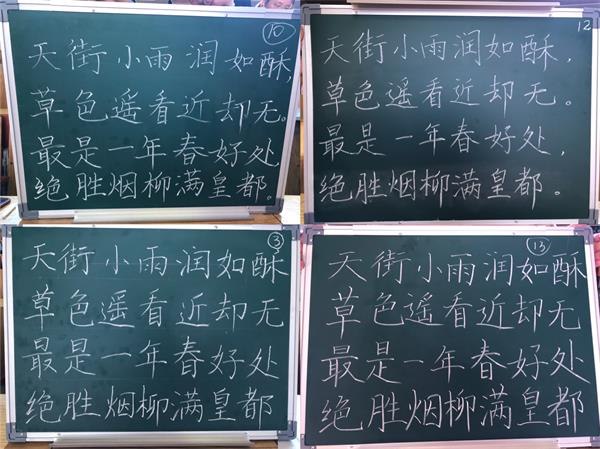 10
天街小雨润如酥,
草色遥看近却无。
最是一年春好处
绝胜烟柳满皇都.
12
天街小雨润如酥,
草色遥看近却无。
最是一年春好处,
绝胜烟柳满皇都。
3
天街小雨润如酥
草色遥看近却无
最是一年春好处
绝胜烟柳满皇都
13
天街小雨润如酥
草色遥看近却无
最是一年春好处
绝胜烟柳满皇都